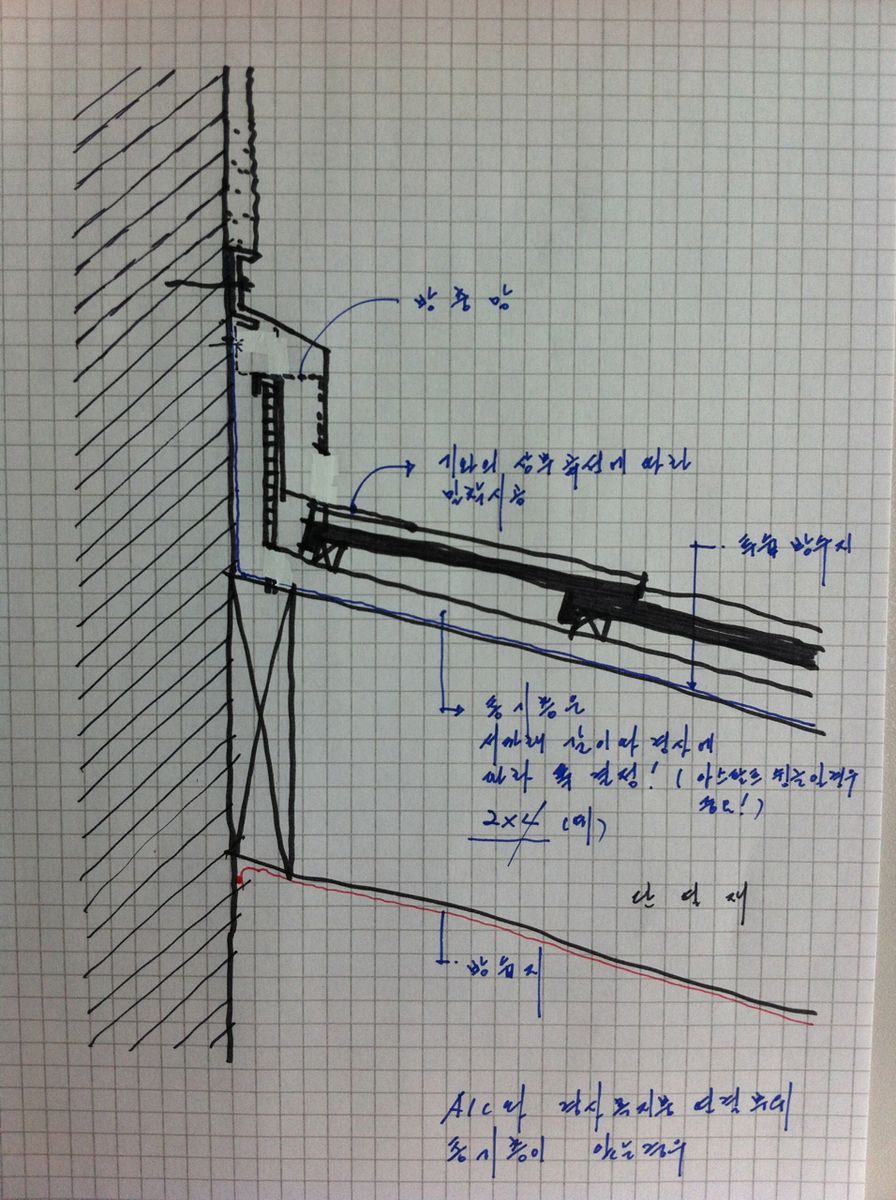 방충망
기와의 상부 특성에 따라
밀착시공
투습 방수지
통기층은
서까래 길이와 경사에
따라 폭 결정! (아스팔트 슁글인경우
중요!)
2×4 (예)
단열재
방습지
ALC와 경사목지붕 연결부위
통기층이 있는경우